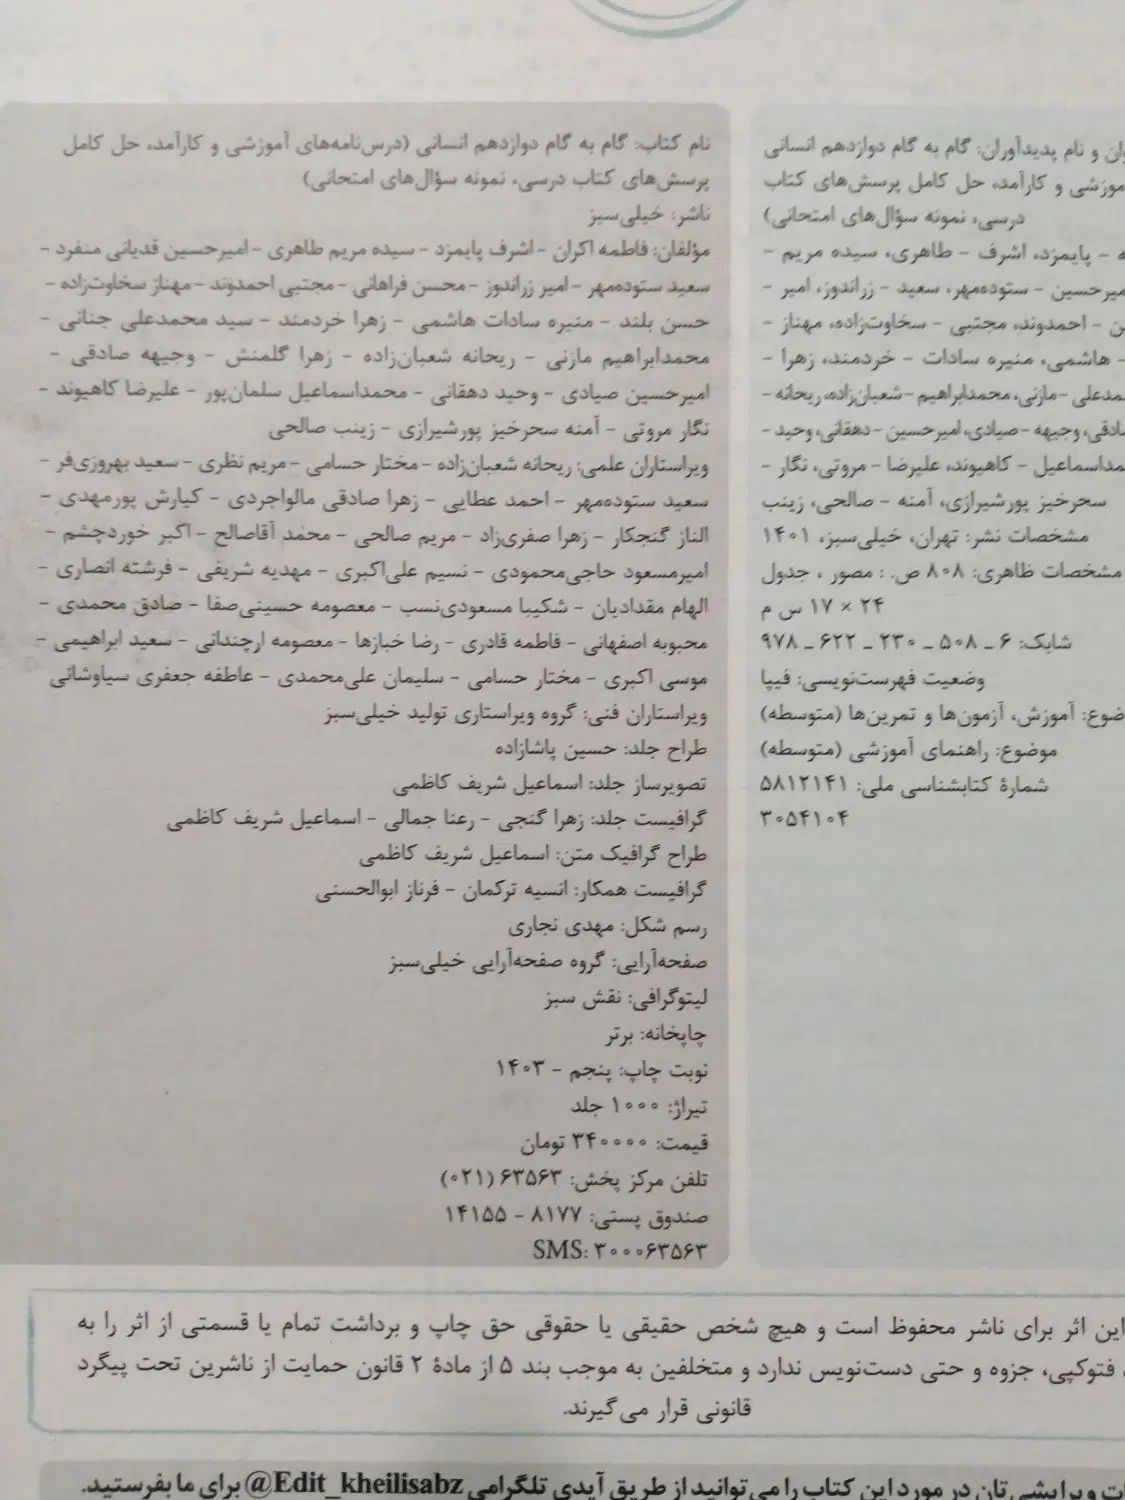 ان و نام پدیدآوران: گام به گام دوازدهم انسانی
موزشی و کارآمد، حل کامل پرسش‌های کتاب
درسی، نمونه سؤال‌های امتحانی)
ه - پایمزد، اشرف - طاهری، سیده مریم -
میرحسین - ستوده‌مهر، سعید - زراندوز، امیر -
ن - احمدوند، مجتبی - سخاوت‌زاده، مهناز -
- هاشمی، منیره سادات - خردمند، زهرا -
مدعلی - مازنی، محمدابراهیم - شعبان‌زاده، ریحانه -
ادقی، وجیهه - صیادی، امیرحسین - دهقانی، وحید -
مداسماعیل - کاهیوند، علیرضا - مروتی، نگار -
سحرخیز پورشیرازی، آمنه - صالحی، زینب
مشخصات نشر: تهران، خیلی‌سبز، ۱۴۰۱
مشخصات ظاهری: ۸۰۸ ص. : مصور ، جدول
۲۴ × ۱۷ س م
شابک: ۶ ـ ۵۰۸ ـ ۲۳۰ ـ ۶۲۲ ـ ۹۷۸
وضعیت فهرست‌نویسی: فیپا
ضوع: آموزش، آزمون‌ها و تمرین‌ها (متوسطه)
موضوع: راهنمای آموزشی (متوسطه)
شمارهٔ کتابشناسی ملی: ۵۸۱۲۱۴۱
۳۰۵۴۱۰۴
نام کتاب: گام به گام دوازدهم انسانی (درس‌نامه‌های آموزشی و کارآمد، حل کامل
پرسش‌های کتاب درسی، نمونه سؤال‌های امتحانی)
ناشر: خیلی‌سبز
مؤلفان: فاطمه اکران - اشرف پایمزد - سیده مریم طاهری - امیرحسین قدیانی منفرد -
سعید ستوده‌مهر - امیر زراندوز - محسن فراهانی - مجتبی احمدوند - مهناز سخاوت‌زاده -
حسن بلند - منیره سادات هاشمی - زهرا خردمند - سید محمدعلی جنانی -
محمدابراهیم مازنی - ریحانه شعبان‌زاده - زهرا گلمنش - وجیهه صادقی -
امیرحسین صیادی - وحید دهقانی - محمداسماعیل سلمان‌پور - علیرضا کاهیوند -
نگار مروتی - آمنه سحرخیز پورشیرازی - زینب صالحی
ویراستاران علمی: ریحانه شعبان‌زاده - مختار حسامی - مریم نظری - سعید بهروزی‌فر -
سعید ستوده‌مهر - احمد عطایی - زهرا صادقی مالواجردی - کیارش پورمهدی -
الناز گنجکار - زهرا صفری‌زاد - مریم صالحی - محمد آقاصالح - اکبر خوردچشم -
امیرمسعود حاجی‌محمودی - نسیم علی‌اکبری - مهدیه شریفی - فرشته انصاری -
الهام مقدادیان - شکیبا مسعودی‌نسب - معصومه حسینی‌صفا - صادق محمدی -
محبوبه اصفهانی - فاطمه قادری - رضا خبازها - معصومه ارجندانی - سعید ابراهیمی -
موسی اکبری - مختار حسامی - سلیمان علی‌محمدی - عاطفه جعفری سیاوشانی
ویراستاران فنی: گروه ویراستاری تولید خیلی‌سبز
طراح جلد: حسین پاشازاده
تصویرساز جلد: اسماعیل شریف کاظمی
گرافیست جلد: زهرا گنجی - رعنا جمالی - اسماعیل شریف کاظمی
طراح گرافیک متن: اسماعیل شریف کاظمی
گرافیست همکار: انسیه ترکمان - فرناز ابوالحسنی
رسم شکل: مهدی نجاری
صفحه‌آرایی: گروه صفحه‌آرایی خیلی‌سبز
لیتوگرافی: نقش سبز
چاپخانه: برتر
نوبت چاپ: پنجم - ۱۴۰۳
تیراژ: ۱۰۰۰ جلد
قیمت: ۳۴۰۰۰۰ تومان
تلفن مرکز پخش: ۶۳۵۶۳ (۰۲۱)
صندوق پستی: ۸۱۷۷ - ۱۴۱۵۵
SMS: ۳۰۰۰۶۳۵۶۳
این اثر برای ناشر محفوظ است و هیچ شخص حقیقی یا حقوقی حق چاپ و برداشت تمام یا قسمتی از اثر را به
، فتوکپی، جزوه و حتی دست‌نویس ندارد و متخلفین به موجب بند ۵ از مادهٔ ۲ قانون حمایت از ناشرین تحت پیگرد
قانونی قرار می‌گیرند.
ات ویرایشی‌تان در مورد این کتاب را می‌توانید از طریق آیدی تلگرامی @Edit_kheilisabz برای ما بفرستید.